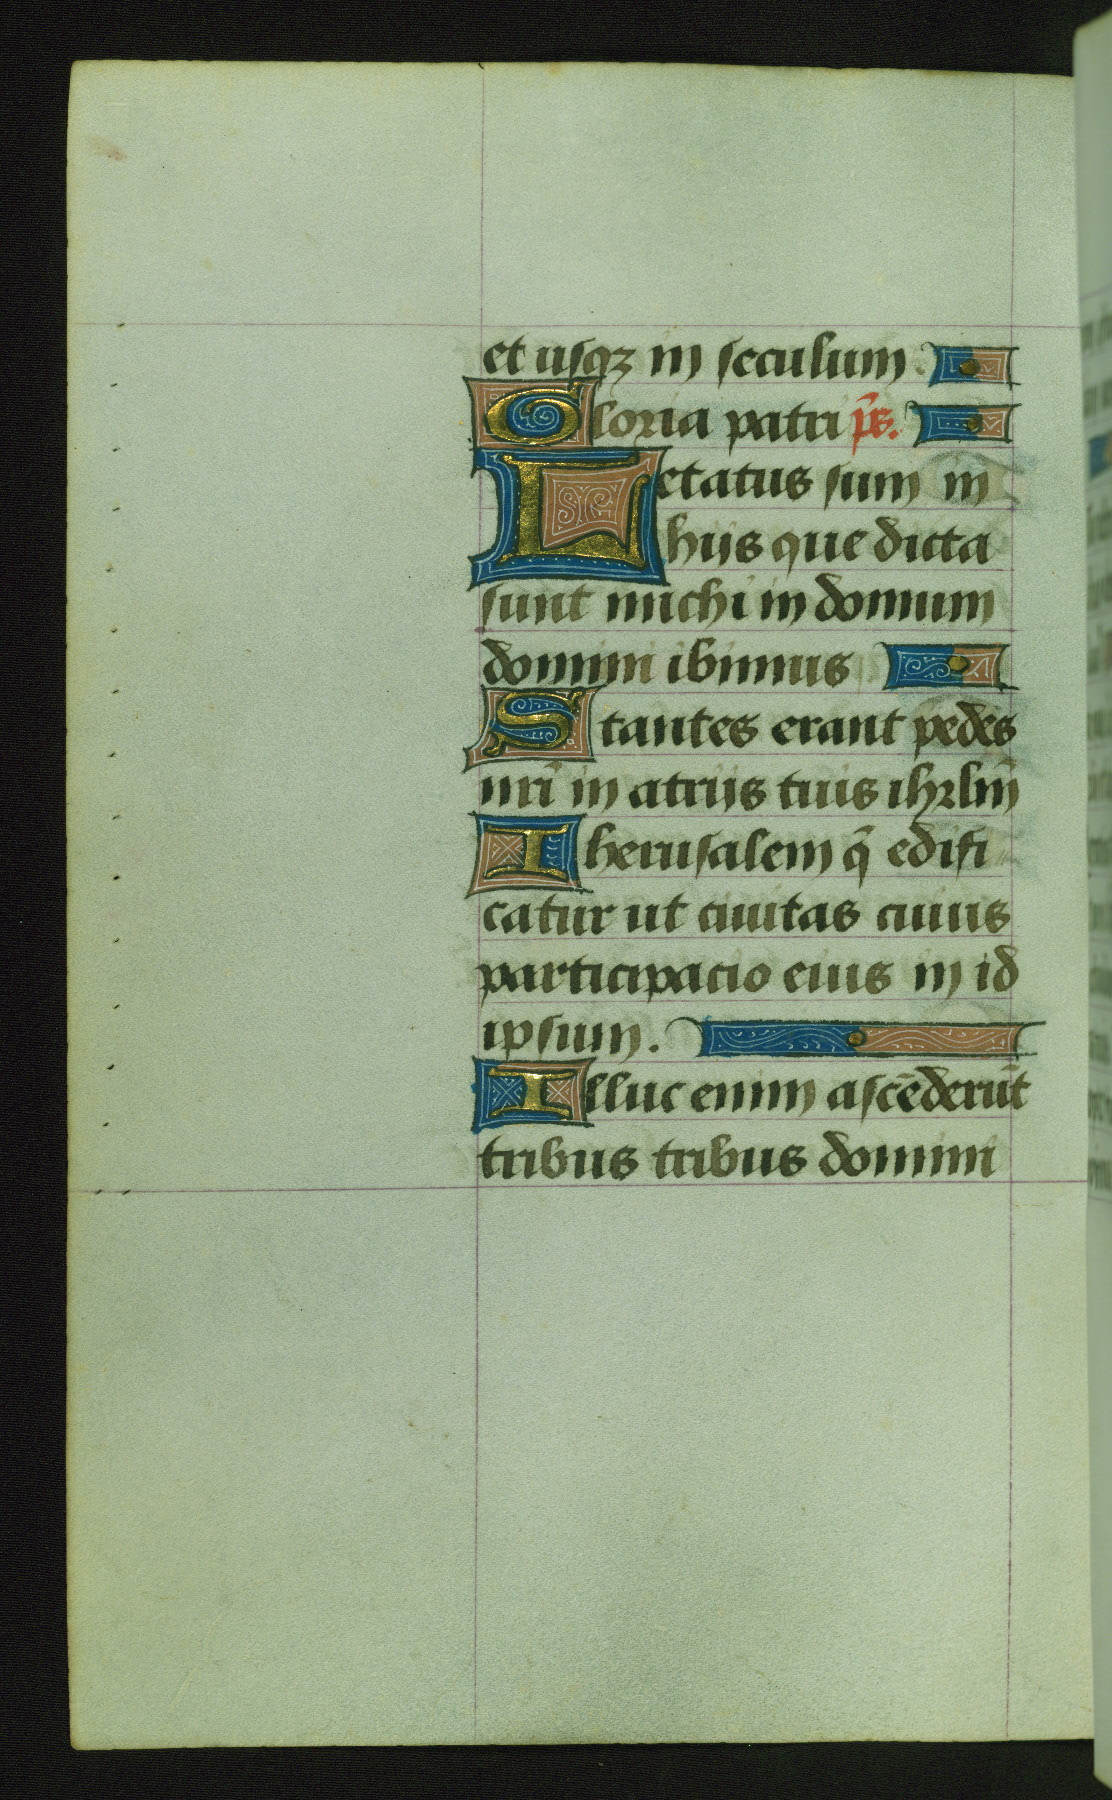 et usqꝫ in seculum
Gloria patri p̄s.
Letatus sum in
hijs que dicta
sunt michi in domum
domini ibimus
Stantes erant pedes
nr̄i in atrijs tuis ihrl̄m
Iherusalem q̄ edifi
catur ut ciuitas cuius
participacio eius in id
ipsum.
Illuc enim ascēderūt
tribus tribus domini